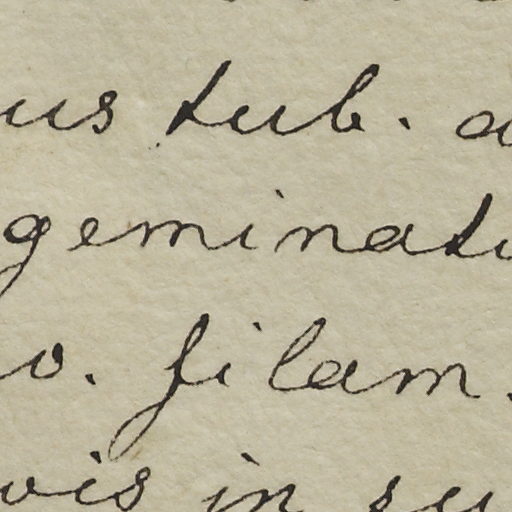 us tub. a
geminati
v. filam.
vis in su